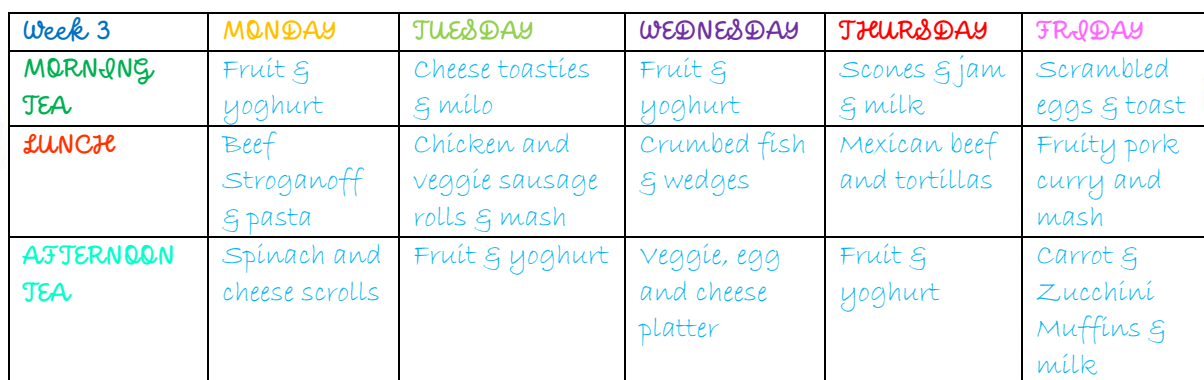 Week 3 MONDAY TUESDAY WEDNESDAY THURSDAY FRIDAY
MORNING TEA
Fruit &
yoghurt
Cheese toasties
& milo
Fruit &
yoghurt
Scones & jam
& milk
Scrambled
eggs & toast
LUNCH
Beef
Stroganoff
& pasta
Chicken and
veggie sausage
rolls & mash
Crumbed fish
& wedges
Mexican beef
and tortillas
Fruity pork
curry and
mash
AFTERNOON
TEA
Spinach and
cheese scrolls
Fruit & yoghurt
Veggie, egg
and cheese
platter
Fruit &
yoghurt
Carrot &
Zucchini
Muffins &
milk